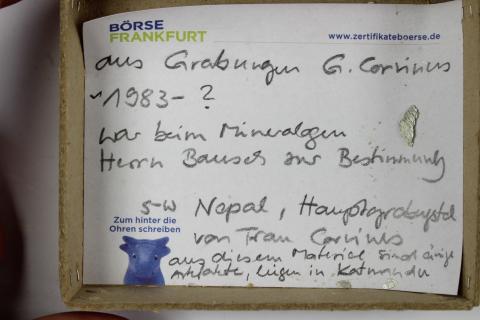 BÖRSE
FRANKFURT
www.zertifikateboerse.de
aus Grabungen G. Corvinus
~1983-?
war beim Mineralogen
Herrn Bausch zur Bestimmung
S-W Nepal, Hauptgrabungsstelle
von Frau Corvinus
aus diesem Material sind einige
Artefakte, liegen in Katmandu
Zum hinter die
Ohren schreiben